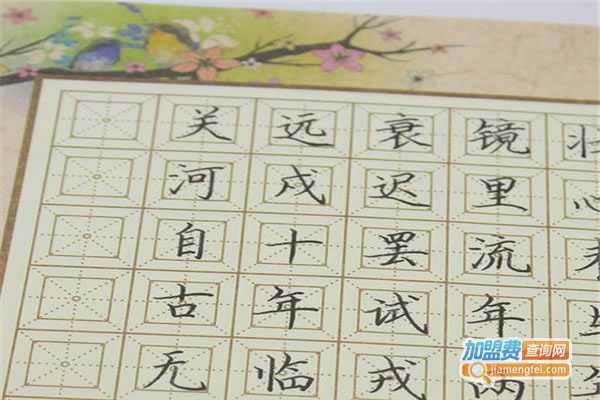 镜里流年两
衰迟罢试戎
远戍十年临
关河自古无
加盟费查询网
jiamengfei.com